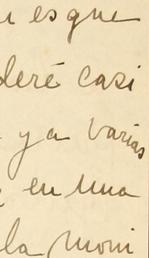 esque
deré casi
ya varias
en una
la moni